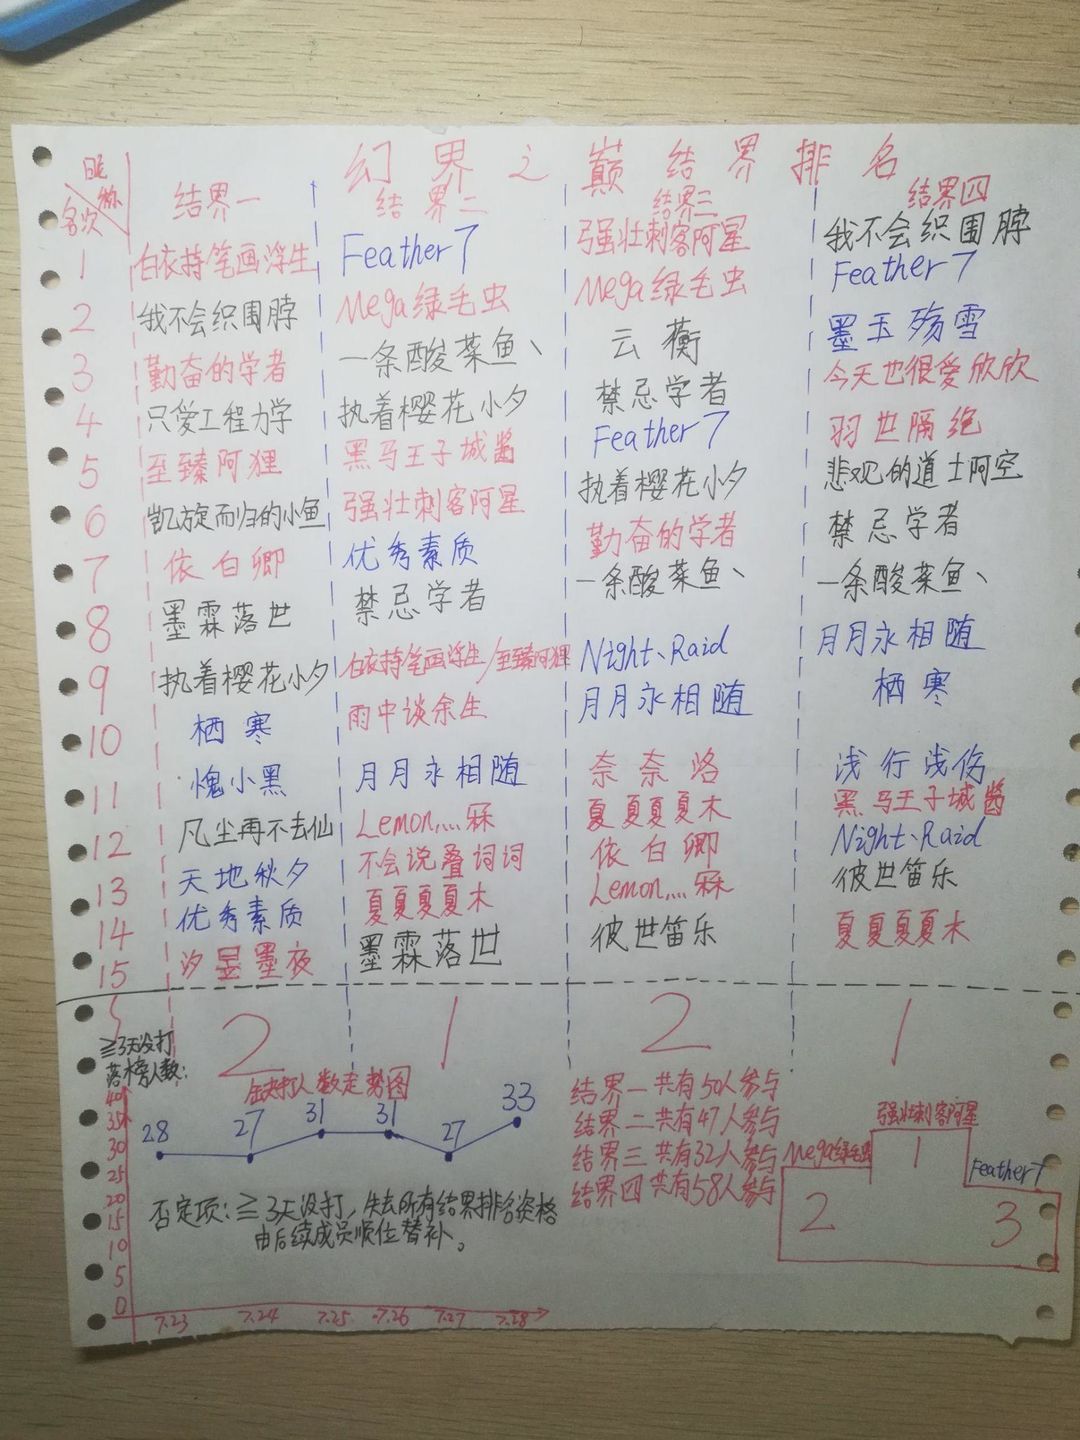 幻界之巅结界排名
昵称
名次
结界一 结界二 结界三 结界四
1 白衣持笔画浮生 Feather7 强壮刺客阿星 我不会织围脖
2 我不会织围脖 Mega绿毛虫 Mega绿毛虫 Feather7
3 勤奋的学者 一条酸菜鱼、 云蘅 墨玉殇雪
4 只爱工程力学 执着樱花小夕 禁忌学者 今天也很爱欣欣
5 至臻阿狸 黑马王子城酱 Feather7 羽世隔绝
6 凯旋而归的小鱼 强壮刺客阿星 执着樱花小夕 悲观的道士阿空
7 依白卿 优秀素质 勤奋的学者 禁忌学者
8 墨霖落世 禁忌学者 一条酸菜鱼、 一条酸菜鱼、
9 执着樱花小夕 白衣持笔画浮生/至臻阿狸 Night、Raid 月月永相随
10 栖寒 雨中谈余生 月月永相随 栖寒
11 愧小黑 月月永相随 奈奈洛 浅行浅伤
12 凡尘再不去仙 Lemon....冧 夏夏夏夏木 黑马王子城酱
13 天地秋夕 不会说叠词词 依白卿 Night、Raid
14 优秀素质 夏夏夏夏木 Lemon....冧 彼世笛乐
15 汐昱墨夜 墨霖落世 彼世笛乐 夏夏夏夏木
≧3天没打
落榜人数:
2 1 2 1
缺打人数走势图
40
35
30
25
20
15
10
5
0
28 27 31 31 27 33
7.23 7.24 7.25 7.26 7.27 7.28
否定项:≧3天没打,失去所有结界排名资格
由后续成员顺位替补。
结界一共有50人参与
结界二共有47人参与
结界三共有32人参与
结界四共有58人参与
强壮刺客阿星
1
Mega绿毛虫
2
Feather7
3